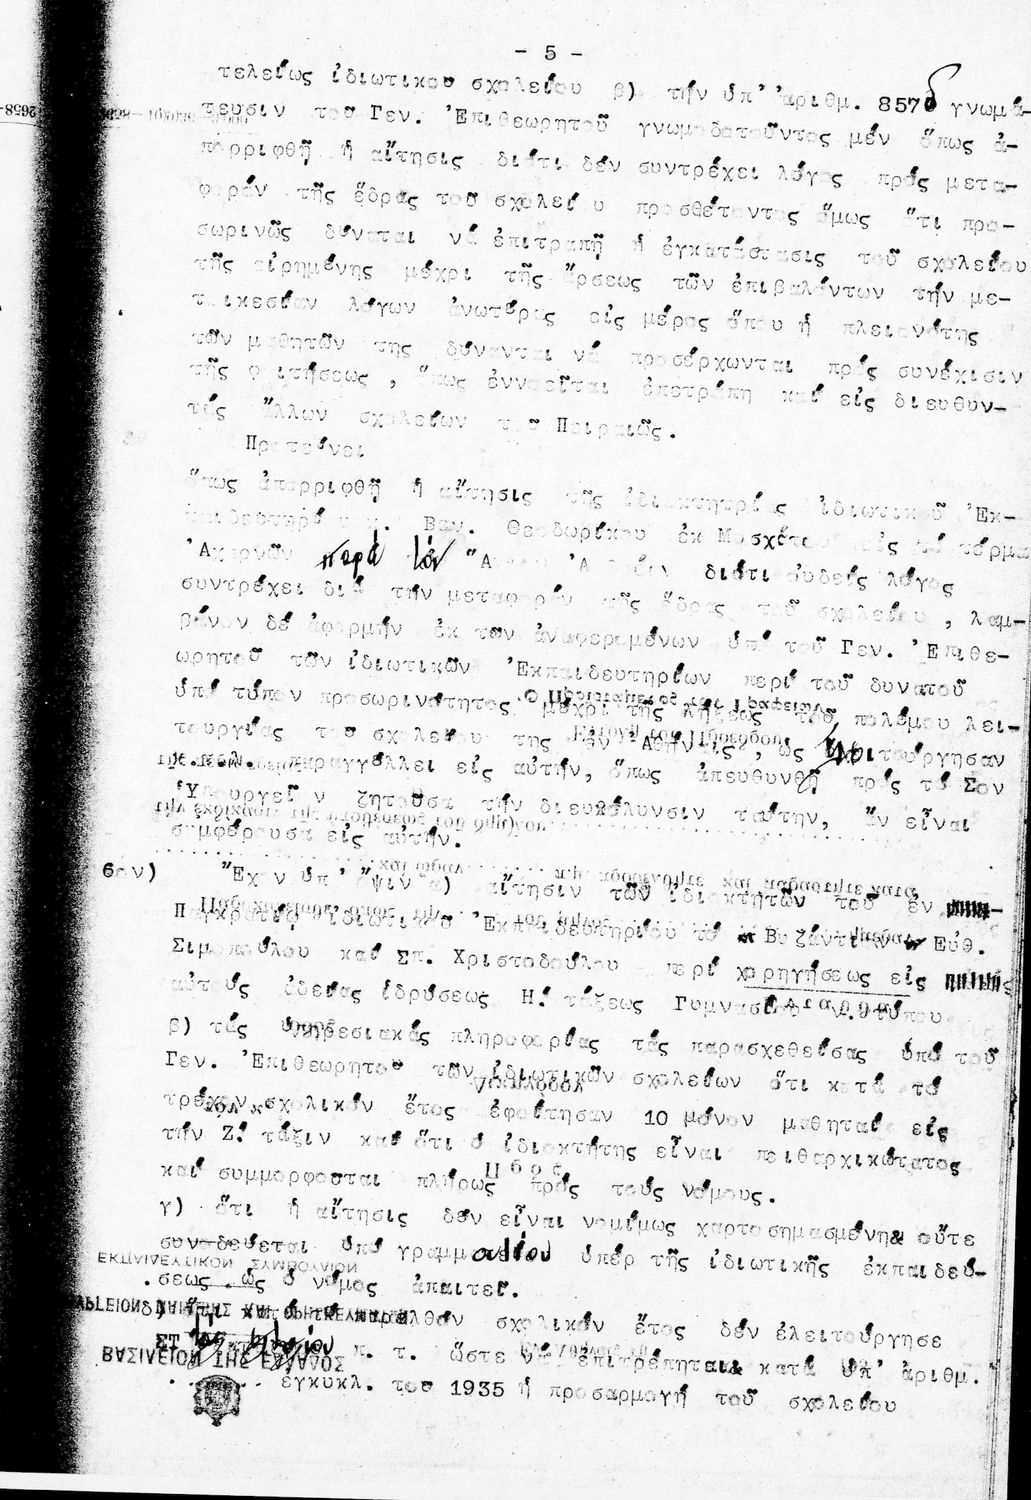 - 5 -
τελείως ἰδιωτικοῦ σχολείου β) τήν ὑπ' ἀριθμ. 8578 γνωμά-
τευσιν τοῦ Γεν. Ἐπιθεωρητοῦ γνωμοδοτοῦντος μέν ὅπως ἀ-
πορριφθῇ ἡ αἴτησις διότι δέν συντρέχει λόγος πρός μετα-
φοράν τῆς ἕδρας τοῦ σχολείου προσθέτοντος ὅμως ὅτι προ-
σωρινῶς δύναται νά ἐπιτραπῇ ἡ ἐγκατάστασις τοῦ σχολείου
τῆς εἰρημένης μέχρι τῆς ἄρσεως τῶν ἐπιβαλόντων τήν με-
τοικεσίαν λόγων ἀνωτέρας εἰς μέρος ὅπου ἡ πλειονότης
τῶν μαθητῶν της δύνανται νά προσέρχωνται πρός συνέχισιν
τῆς φοιτήσεως, ὅπως ἐννοεῖται ἐπετράπη καί εἰς διευθυν-
τάς ἄλλων σχολείων τοῦ Πειραιῶς.
Προτείνει
ὅπως ἀπορριφθῇ ἡ αἴτησις τῆς ἰδιοκτητρίας ἰδιωτικοῦ Ἐκ-
παιδευτηρίου κ. Βαν. Θεοδωρίκου ἐκ Μοσχάτου εἰς τό τέρμα
Ἀχαρνῶν παρά τόν Ἅγιον διότι οὐδείς λόγος
συντρέχει διά τήν μεταφοράν τῆς ἕδρας τοῦ σχολείου, λαμ-
βάνον δέ ἀφορμήν ἐκ τῶν ἀναφερομένων ὑπό τοῦ Γεν. Ἐπιθε-
ωρητοῦ τῶν ἰδιωτικῶν Ἐκπαιδευτηρίων περί τοῦ δυνατοῦ
ὑπό τύπον προσωρινότητος μέχρι τῆς λήξεως τοῦ πολέμου λει-
τουργίας τοῦ σχολείου της ἐν Ἀθήναις, ὡς
παραγγέλλει εἰς αὐτήν, ὅπως ἀπευθυνθῇ πρός τό Σον
Ὑπουργεῖον ζητοῦσα τήν διευκόλυνσιν ταύτην, ἄν εἶναι
συμφέρουσα εἰς αὐτήν.
6ον) Ἔχον ὑπ' ὄψιν α) αἴτησιν τῶν ἰδιοκτητῶν τοῦ ἐν
Παγκρατίῳ ἰδιωτικοῦ Ἐκπαιδευτηρίου τό Βυζάντιον Εὐθ.
Σιμοπούλου καί Σπ. Χριστοδούλου περί χορηγήσεως εἰς
αὐτούς ἀδείας ἱδρύσεως Η! τάξεως Γυμνασίου ν.τύπου
β) τάς ὑπηρεσιακάς πληροφορίας τάς παρασχεθείσας ὑπό τοῦ
Γεν. Ἐπιθεωρητοῦ τῶν ἰδιωτικῶν σχολείων ὅτι κατά τό
τρέχον σχολικόν ἔτος ἐφοίτησαν 10 μόνον μαθηταί εἰς
τήν Ζ! τάξιν καί ὅτι ὁ ἰδιοκτήτης εἶναι πειθαρχικώτατος
καί συμμορφοῦται πλήρως πρός τούς νόμους.
γ) ὅτι ἡ αἴτησις δέν εἶναι νομίμως χαρτοσημασμένη οὔτε
συνοδεύεται ὑπό γραμματίου ὑπέρ τῆς ἰδιωτικῆς ἐκπαιδεύ-
σεως ὡς ὁ νόμος ἀπαιτεῖ.
δ) ὅτι κατά τό παρελθόν σχολικόν ἔτος δέν ἐλειτούργησε
ΣΤ π. τ. ὥστε νά ἐπιτρέπηται κατά ὑπ' ἀριθμ.
ἐγκυκλ. τοῦ 1935 ἡ προσαρμογή τοῦ σχολείου
ΒΑΣΙΛΕΙΟΝ ΤΗΣ ΕΛΛΑΔΟΣ